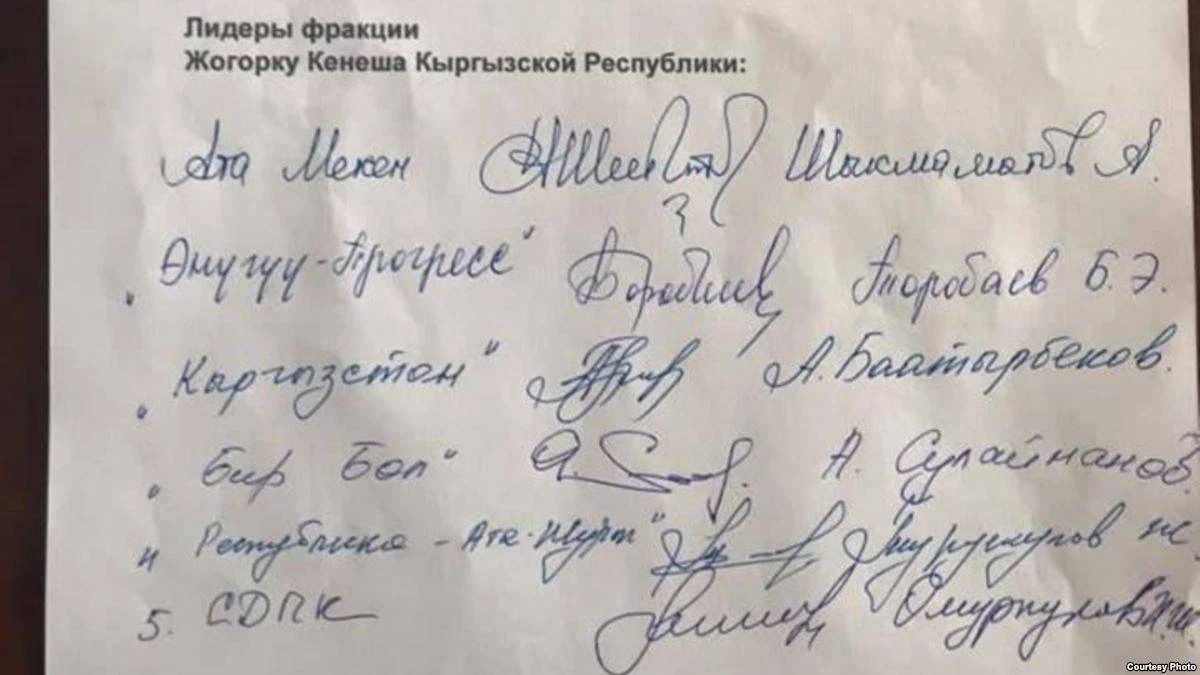 Лидеры фракции
Жогорку Кенеша Кыргызской Республики:
Ата Мекен Шыкмаматов А.
„Өнүгүү-Прогресс“ Торобаев Б.Э.
„Кыргызстан“ А.Баатырбеков.
„Бир Бол“ А. Сулайманов.
„Республика - Ата-Журт“ Ж.
5. СДПК Омуркулов И.Ш.
Courtesy Photo